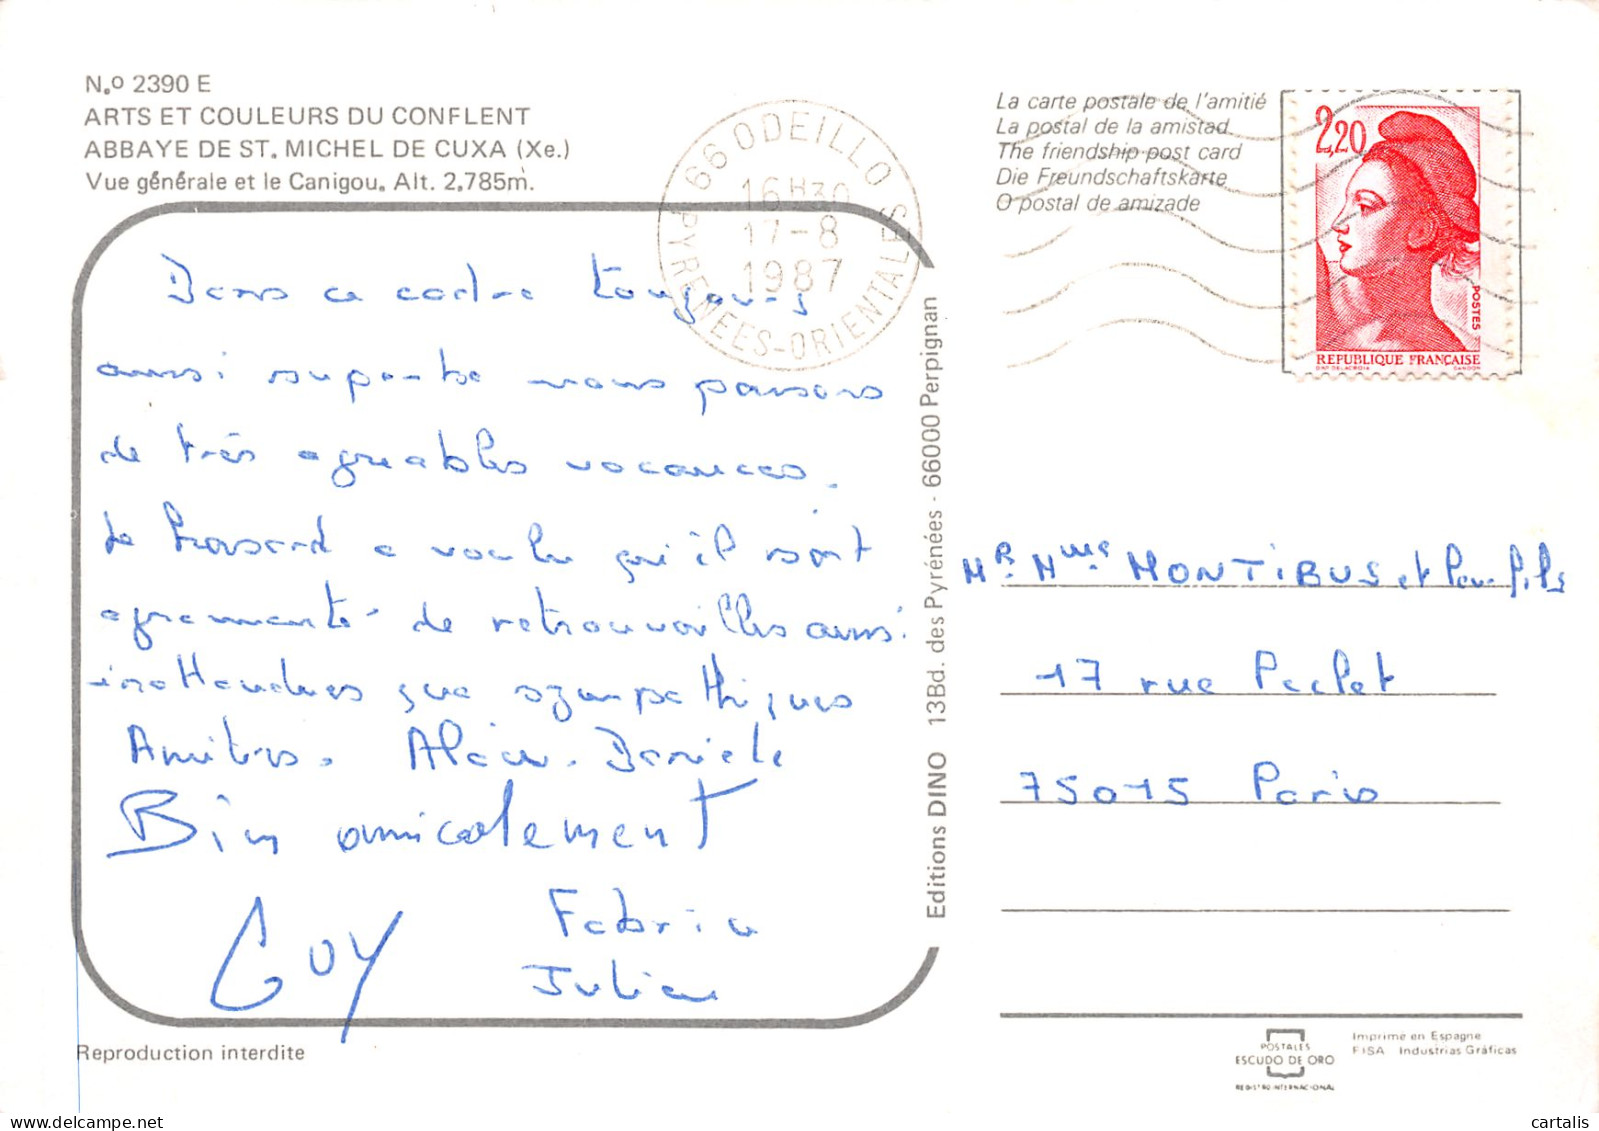 N.º 2390 E
ARTS ET COULEURS DU CONFLENT
ABBAYE DE ST. MICHEL DE CUXA (Xe.)
Vue générale et le Canigou. Alt. 2.785m.
66 ODEILLO
16H30
17-8
1987
PYRENEES-ORIENTALES
La carte postale de l'amitié
La postal de la amistad
The friendship post card
Die Freundschaftskarte
O postal de amizade
2,20
POSTES
REPUBLIQUE FRANÇAISE
D'AP DELACROIX GANDON
Dans ce cadre toujours
aussi superbe nous passons
de très agréables vacances.
Le hasard a voulu qu'il soit
agrementé de retrouvailles aussi
inattendues que sympathiques
Amitiés. Alain. Daniele
Bien amicalement
GUY
Fabrice
Julien
Editions DINO 13Bd. des Pyrénées - 66000 Perpignan
MR. Mme MONTIBUS et leur fils
17 rue Peclet
75015 Paris
Reproduction interdite
POSTALES
ESCUDO DE ORO
REGISTRO INTERNACIONAL
Imprimé en Espagne
FISA Industrias Gráficas
cartalis